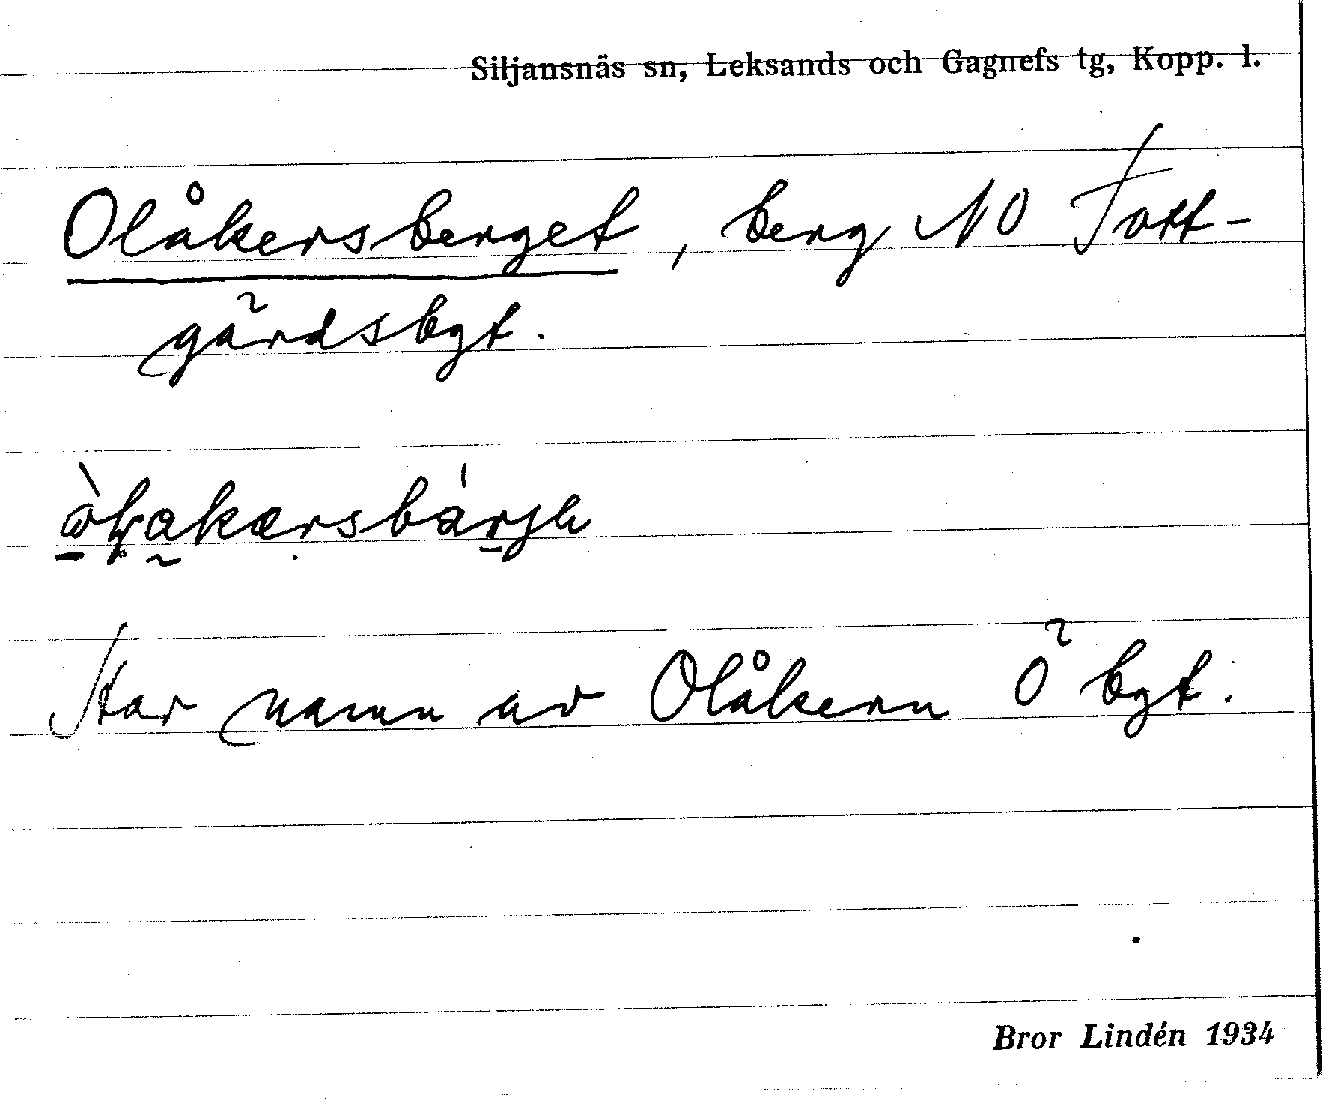 Siljansnäs sn, Leksands och Gagnefs tg, Kopp. l.
Olåkersberget, berg NO Tott-
gårdsbgt.
Har namn av Olåkern Ö bgt.
Bror Lindén 1934